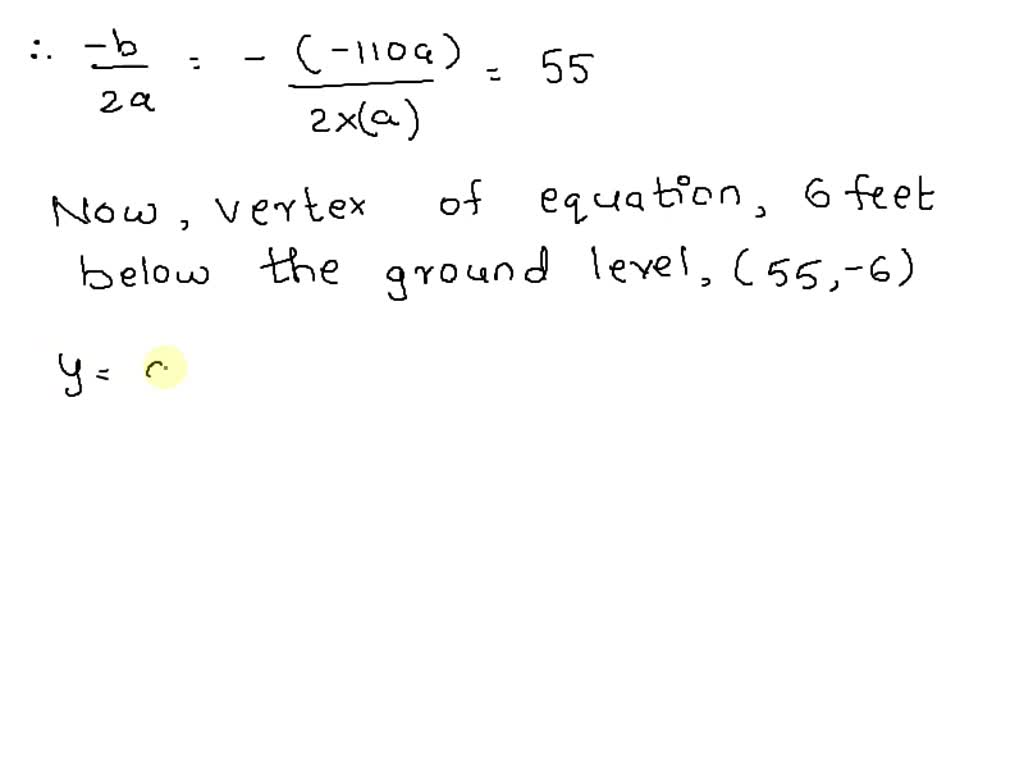 ∴ -b/2a = - (-110a)/2x(a) = 55
Now, vertex of equation, 6 feet
below the ground level, (55,-6)
y =